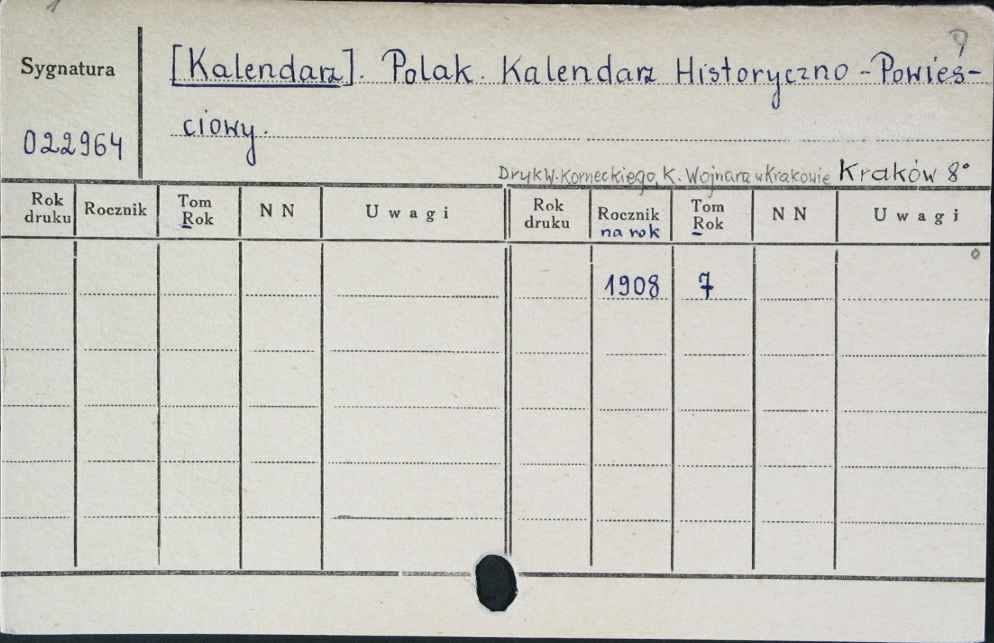 Sygnatura
[Kalendarz]. Polak. Kalendarz Historyczno-Powieś-
022964
ciowy.
Druk W. Korneckiego, K. Wojnara w Krakowie Kraków 8°
Rok druku Rocznik Tom Rok N N Uwagi Rok druku Rocznik na rok Tom Rok N N Uwagi
1908 7